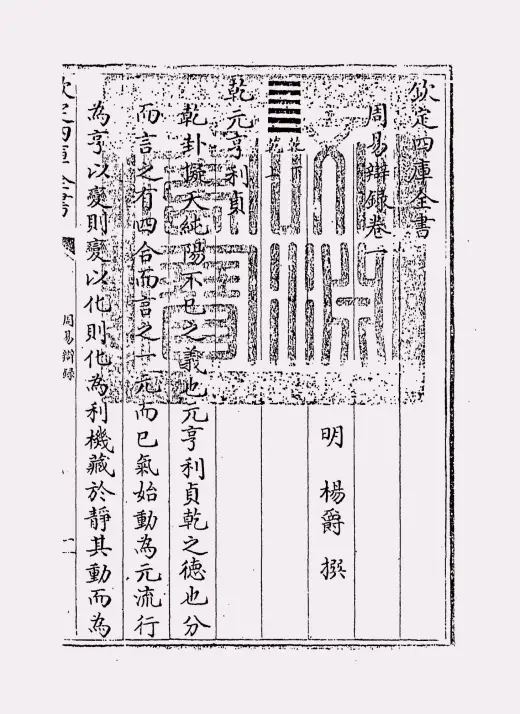 欽定四庫全書
周易辯録卷一
明 楊爵 撰
乾下
乾上
乾元亨利貞
乾卦擬天純陽不已之義也元亨利貞乾之徳也分
而言之有四合而言之一元而已氣始動為元流行
為亨以變則變以化則化為利機藏於靜其動而為
欽定四庫全書
周易辯録
一